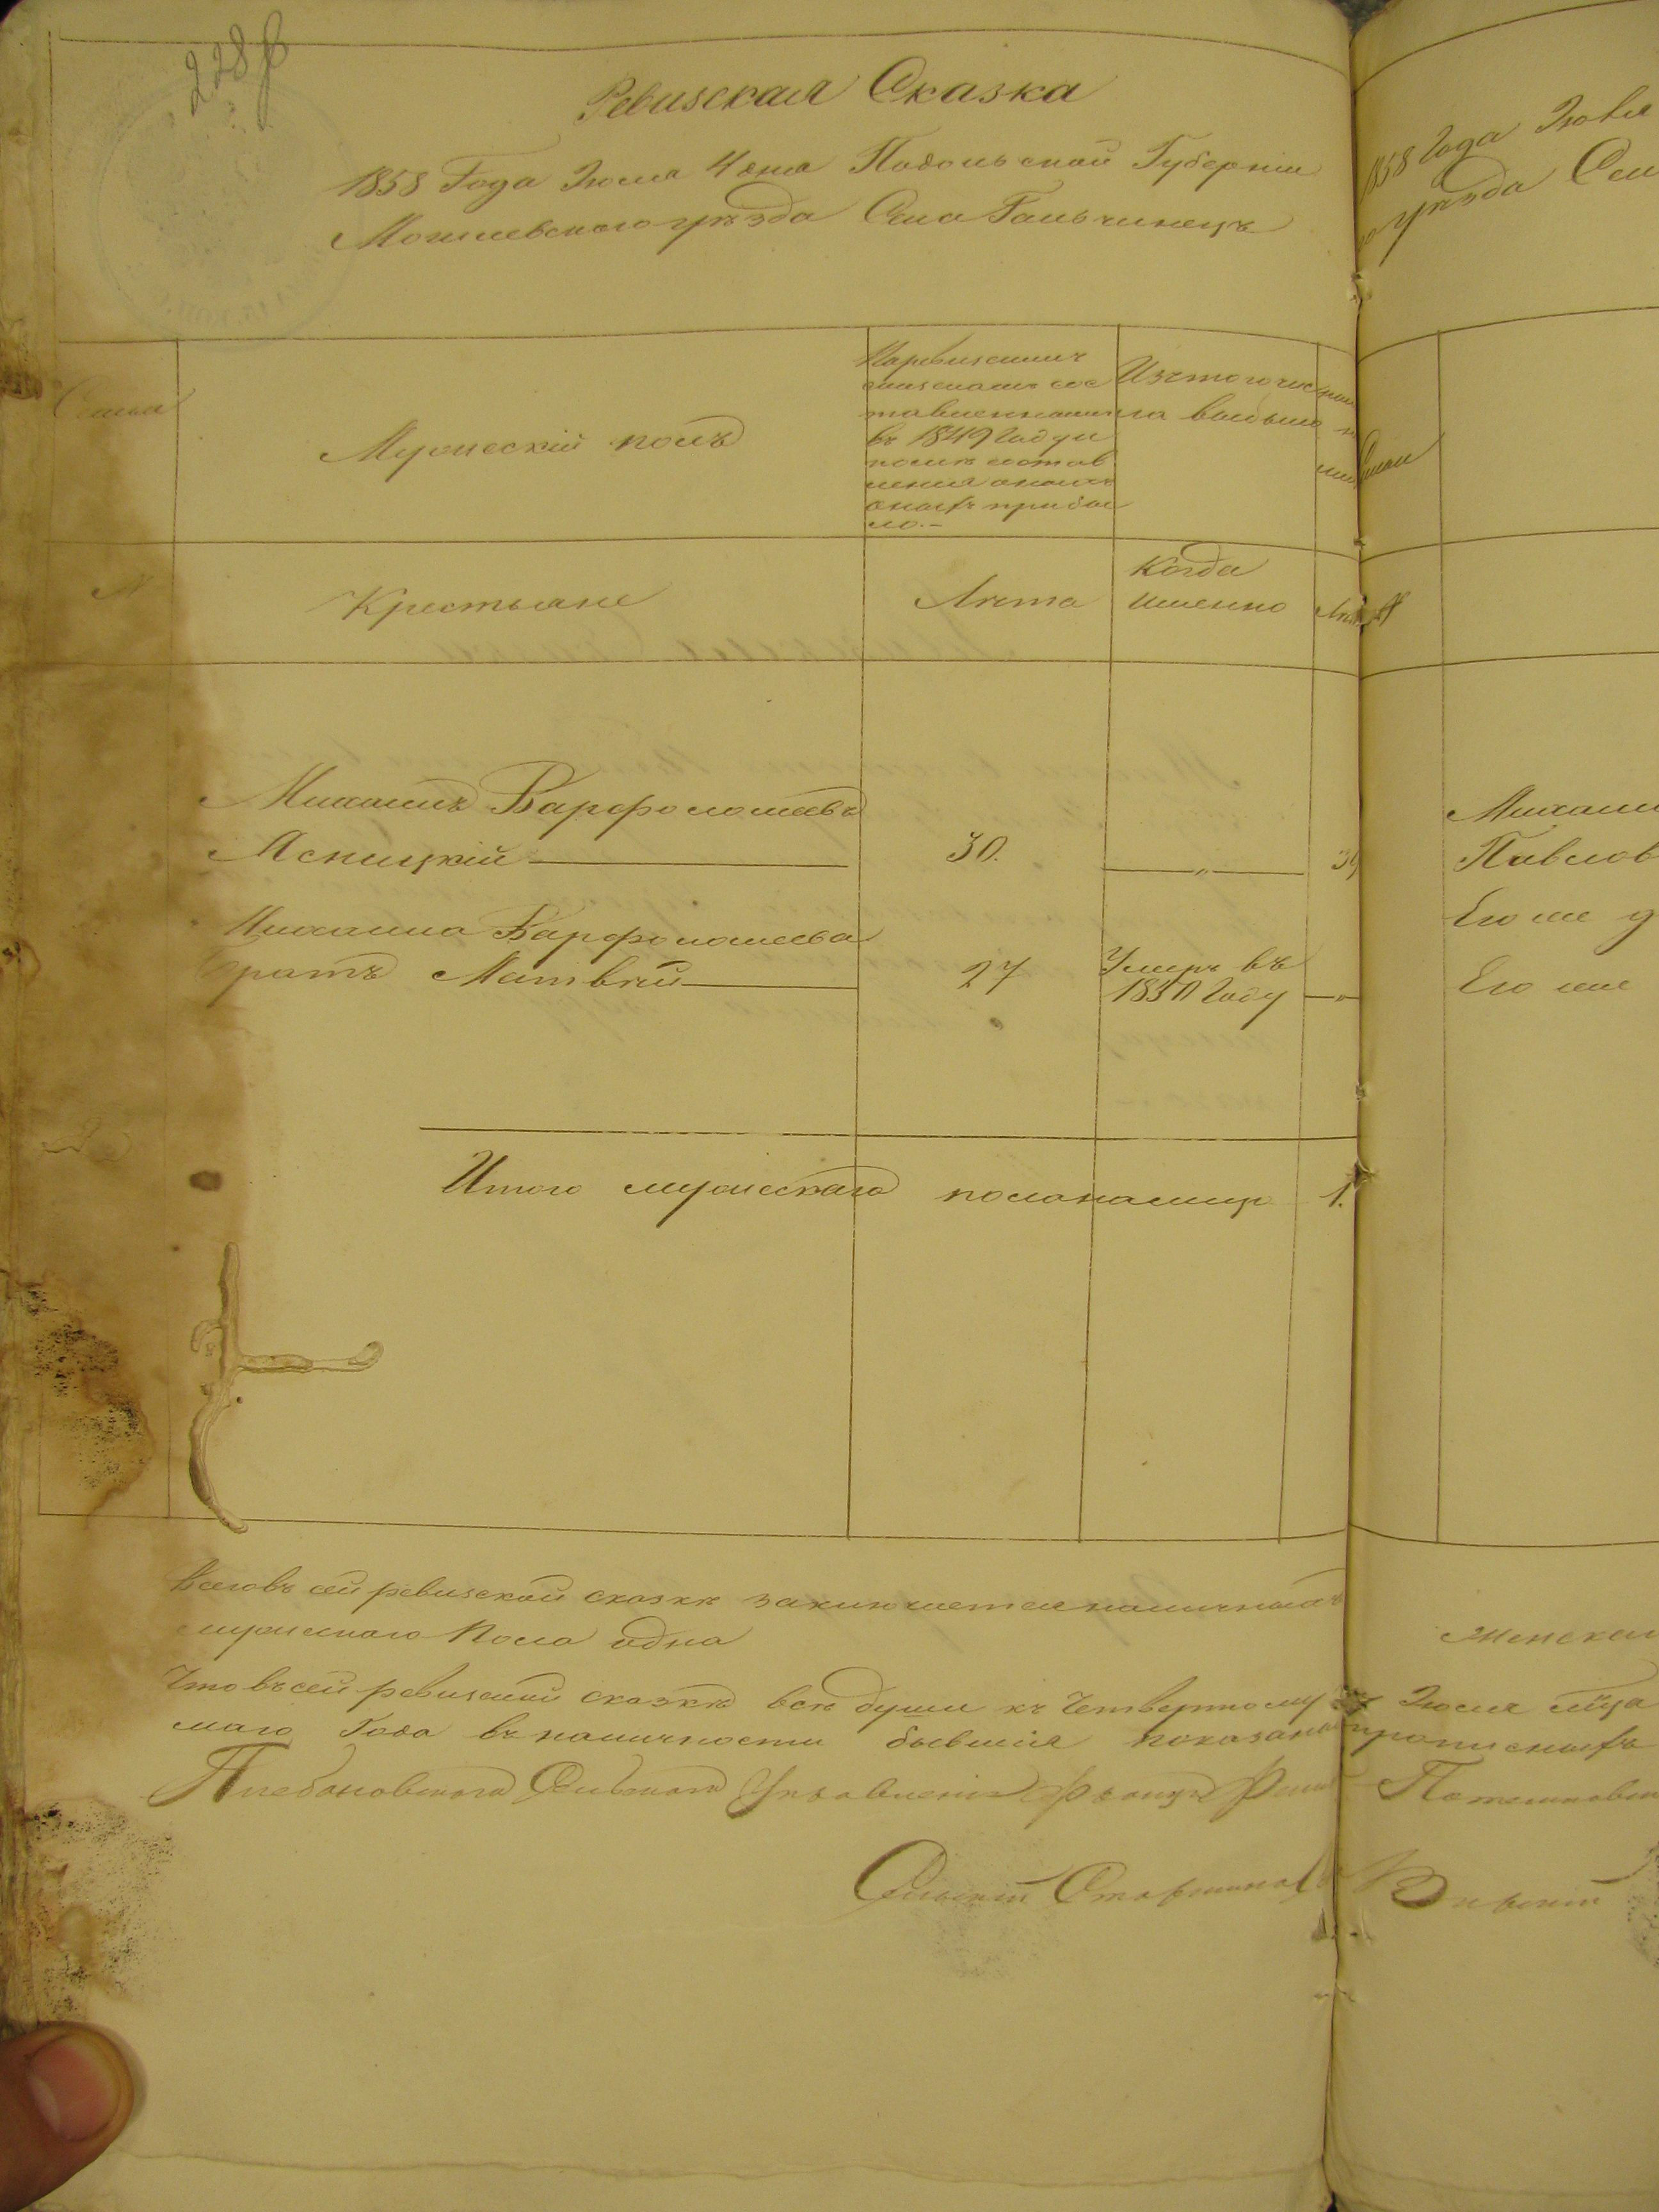 228 об
Ревизская Сказка
1858 Года Июля 4 дня Подольской Губерніи
Могилевского уѣзда Села Гальчинецъ
Семья
Мужескій полъ
По ревизскимъ
сказкамъ сос
тавленнымъ
въ 1849 Году и
послѣ состав
ленія оныхъ
прибы
ло.-
Изъ того чис
ла выбыло
N
Крестьяне
Лѣта
Когда
именно
Лѣта
Михаилъ Варфоломеевъ
Ясницкій
30.
"
39
Михаила Варфоломеева
братъ Матвѣй
27
Умеръ въ
1850 Году
"
Итого мужескаго пола налицо 1.
Всего въ сей ревизской сказкѣ заключается наличныхъ
мужескаго Пола одна
Что въ сей ревизской сказкѣ всѣ души къ Четвертому
маго Года въ наличности бывшія показаны
Сельскаго Управленія
Сельскій Старшина
1858 Года Июля
уѣзда
N
Михаил
Павлов
Его же
Его же
женскаго
Июля